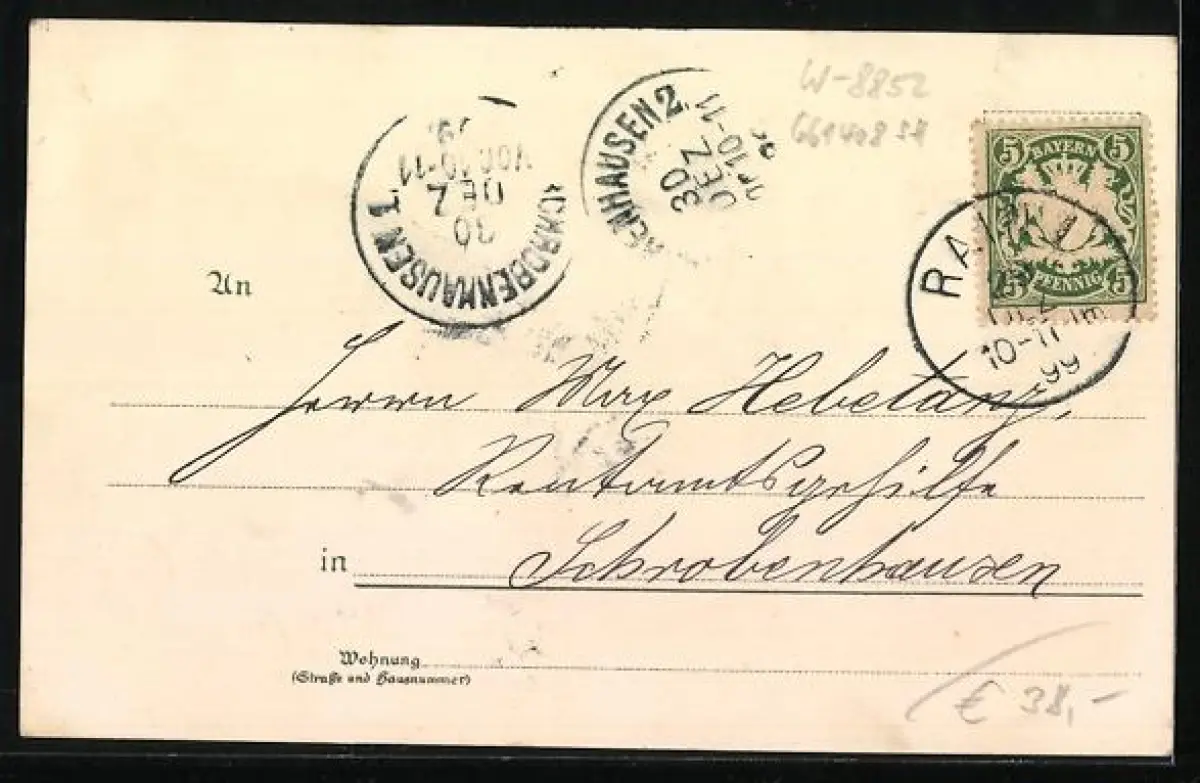 W-8852
SCHROBENHAUSEN 1.
30
DEZ
VOR.10-11
ENHAUSEN 2.
30
DEZ
10-11
5 BAYERN 5
5 PFENNIG 5
RAIN
DEZ
10-11
99
An
Herrn Max Hebetanz,
Rentamtsgehilfe
in Schrobenhausen
Wohnung
(Straße und Hausnummer)
€ 38,-